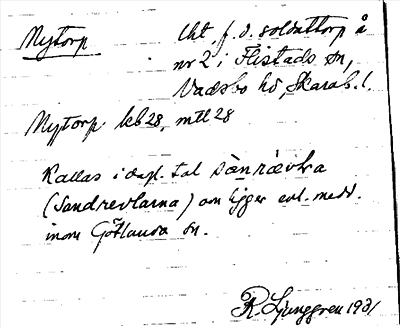 Nytorp
lht f. d. soldattorp å
nr 2 i Flistads sn,
Vadsbo hd, Skarab. l.
Nytorp kb 28, mtl 28
Kallas i dagl. tal
(Sandrevlarna) och ligger enl. medd.
inom Götlunda sn.
R. Ljunggren 1931